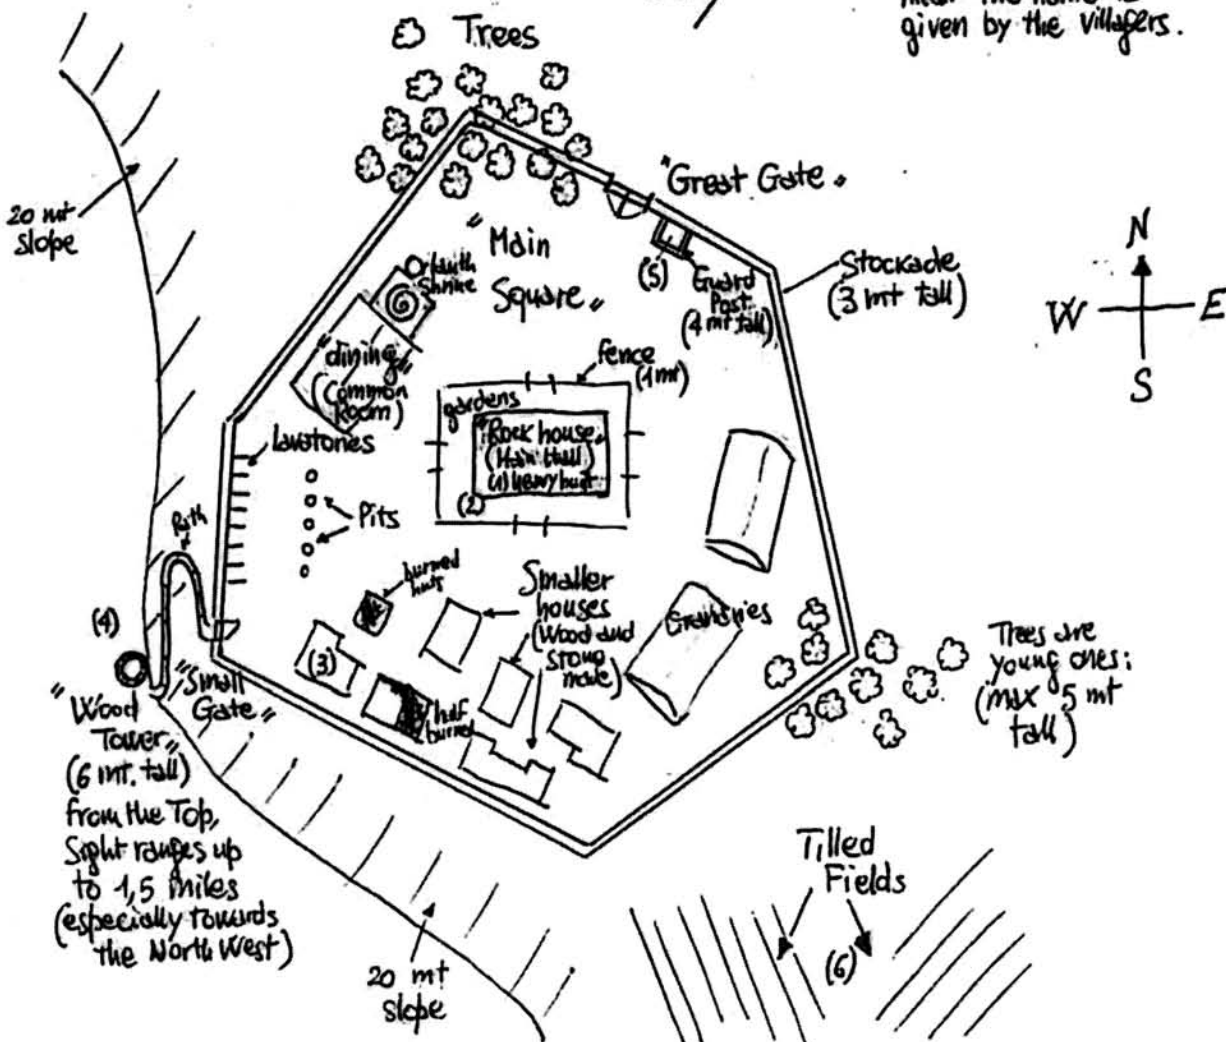 given by the villagers.
Trees
"Great Gate"
20 mt
slope
"Main
Square"
Shrine
(5)
Guard
Post
(4 mt. tall)
Stockade
(3 mt tall)
N
W
E
S
"dining"
(Common
Room)
fence
(1 mt)
gardens
"Rock house"
(Main Hall)
(1) heavy built
(2)
lavatories
Pits
Path
burned
huts
Smaller
houses
(Wood and
stone
made)
Granaries
(4)
(3)
half
burned
"Small
Gate"
"Wood
Tower"
(6 mt. tall)
from the Top,
Sight ranges up
to 1,5 miles
(especially towards
the North West)
Trees are
young ones:
(max 5 mt
tall)
Tilled
Fields
(6)
20 mt
slope